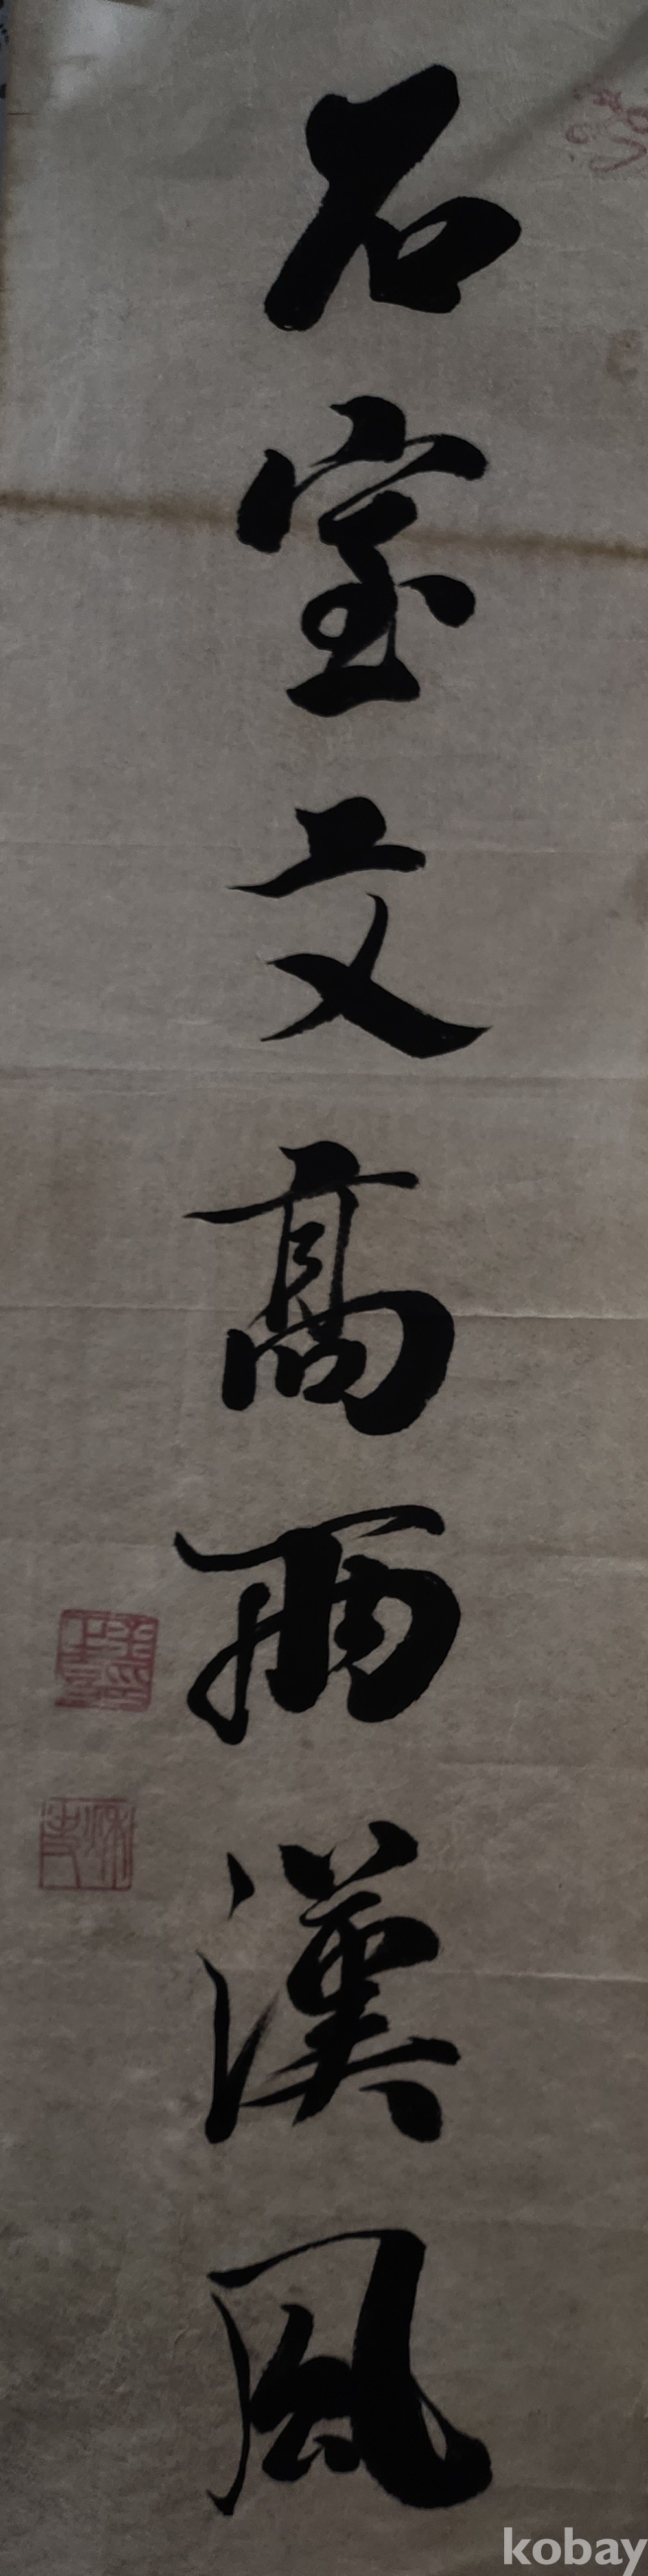 石室文高兩漢風
kobay